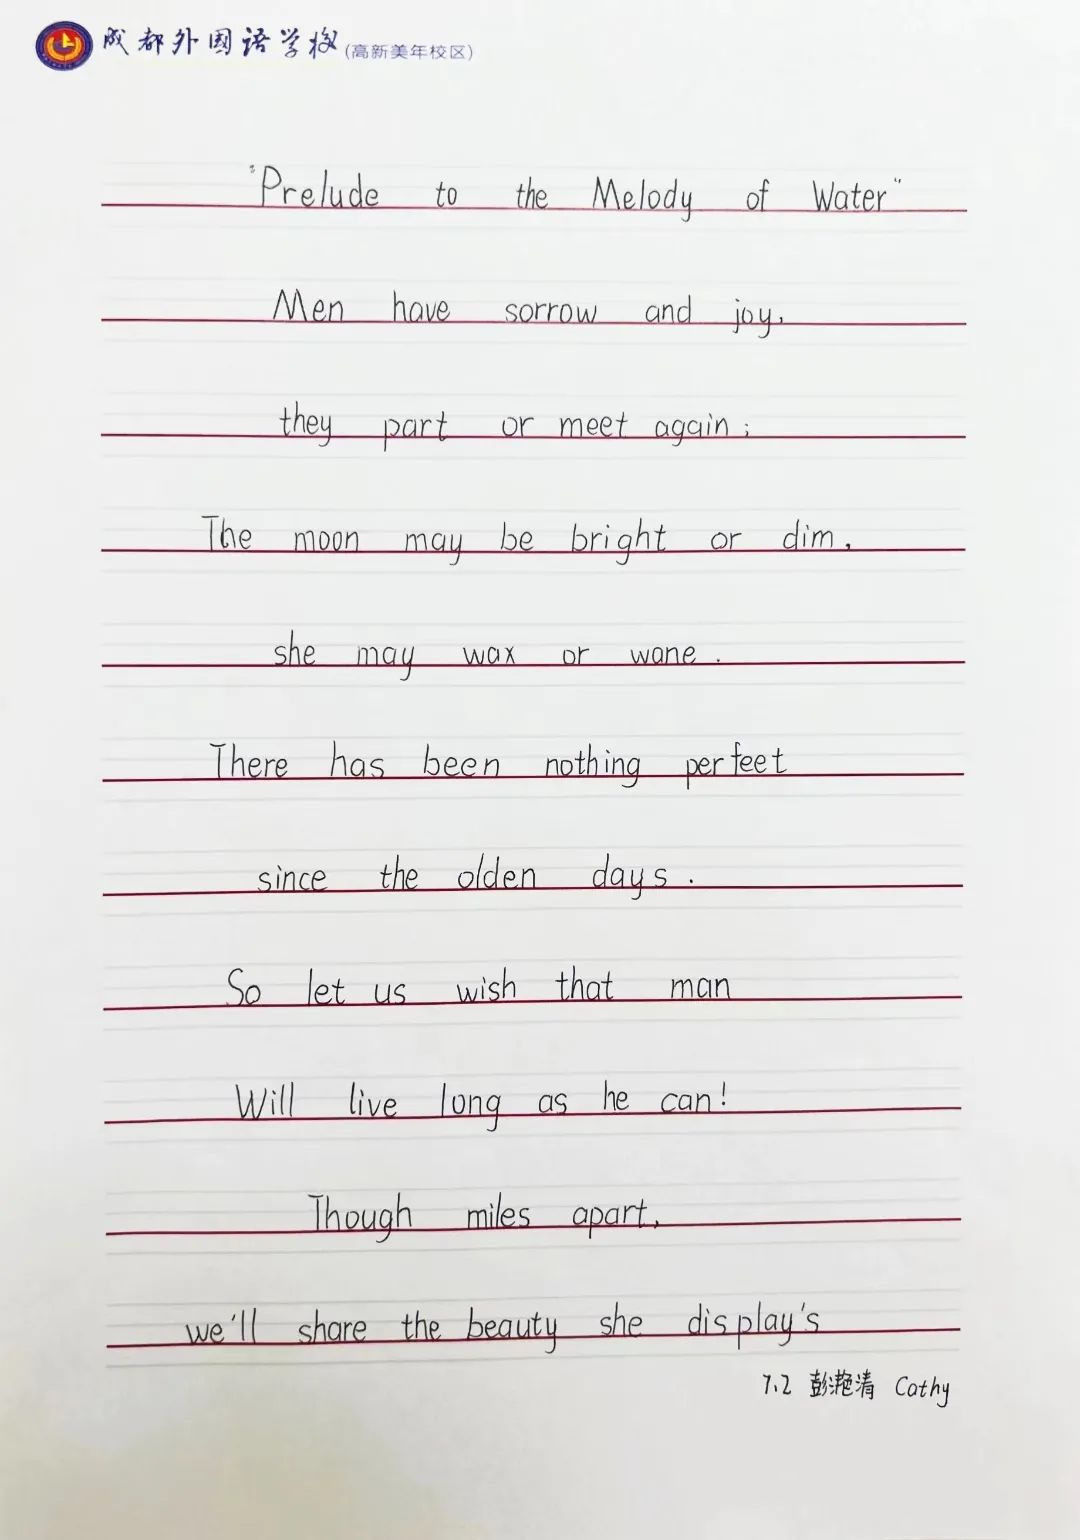 成都外国语学校(高新美年校区)
"Prelude to the Melody of Water"
Men have sorrow and joy,
they part or meet again;
The moon may be bright or dim,
she may wax or wane.
There has been nothing perfeet
since the olden days.
So let us wish that man
Will live long as he can!
Though miles apart,
we'll share the beauty she display's
7.2 彭滟清 Cathy